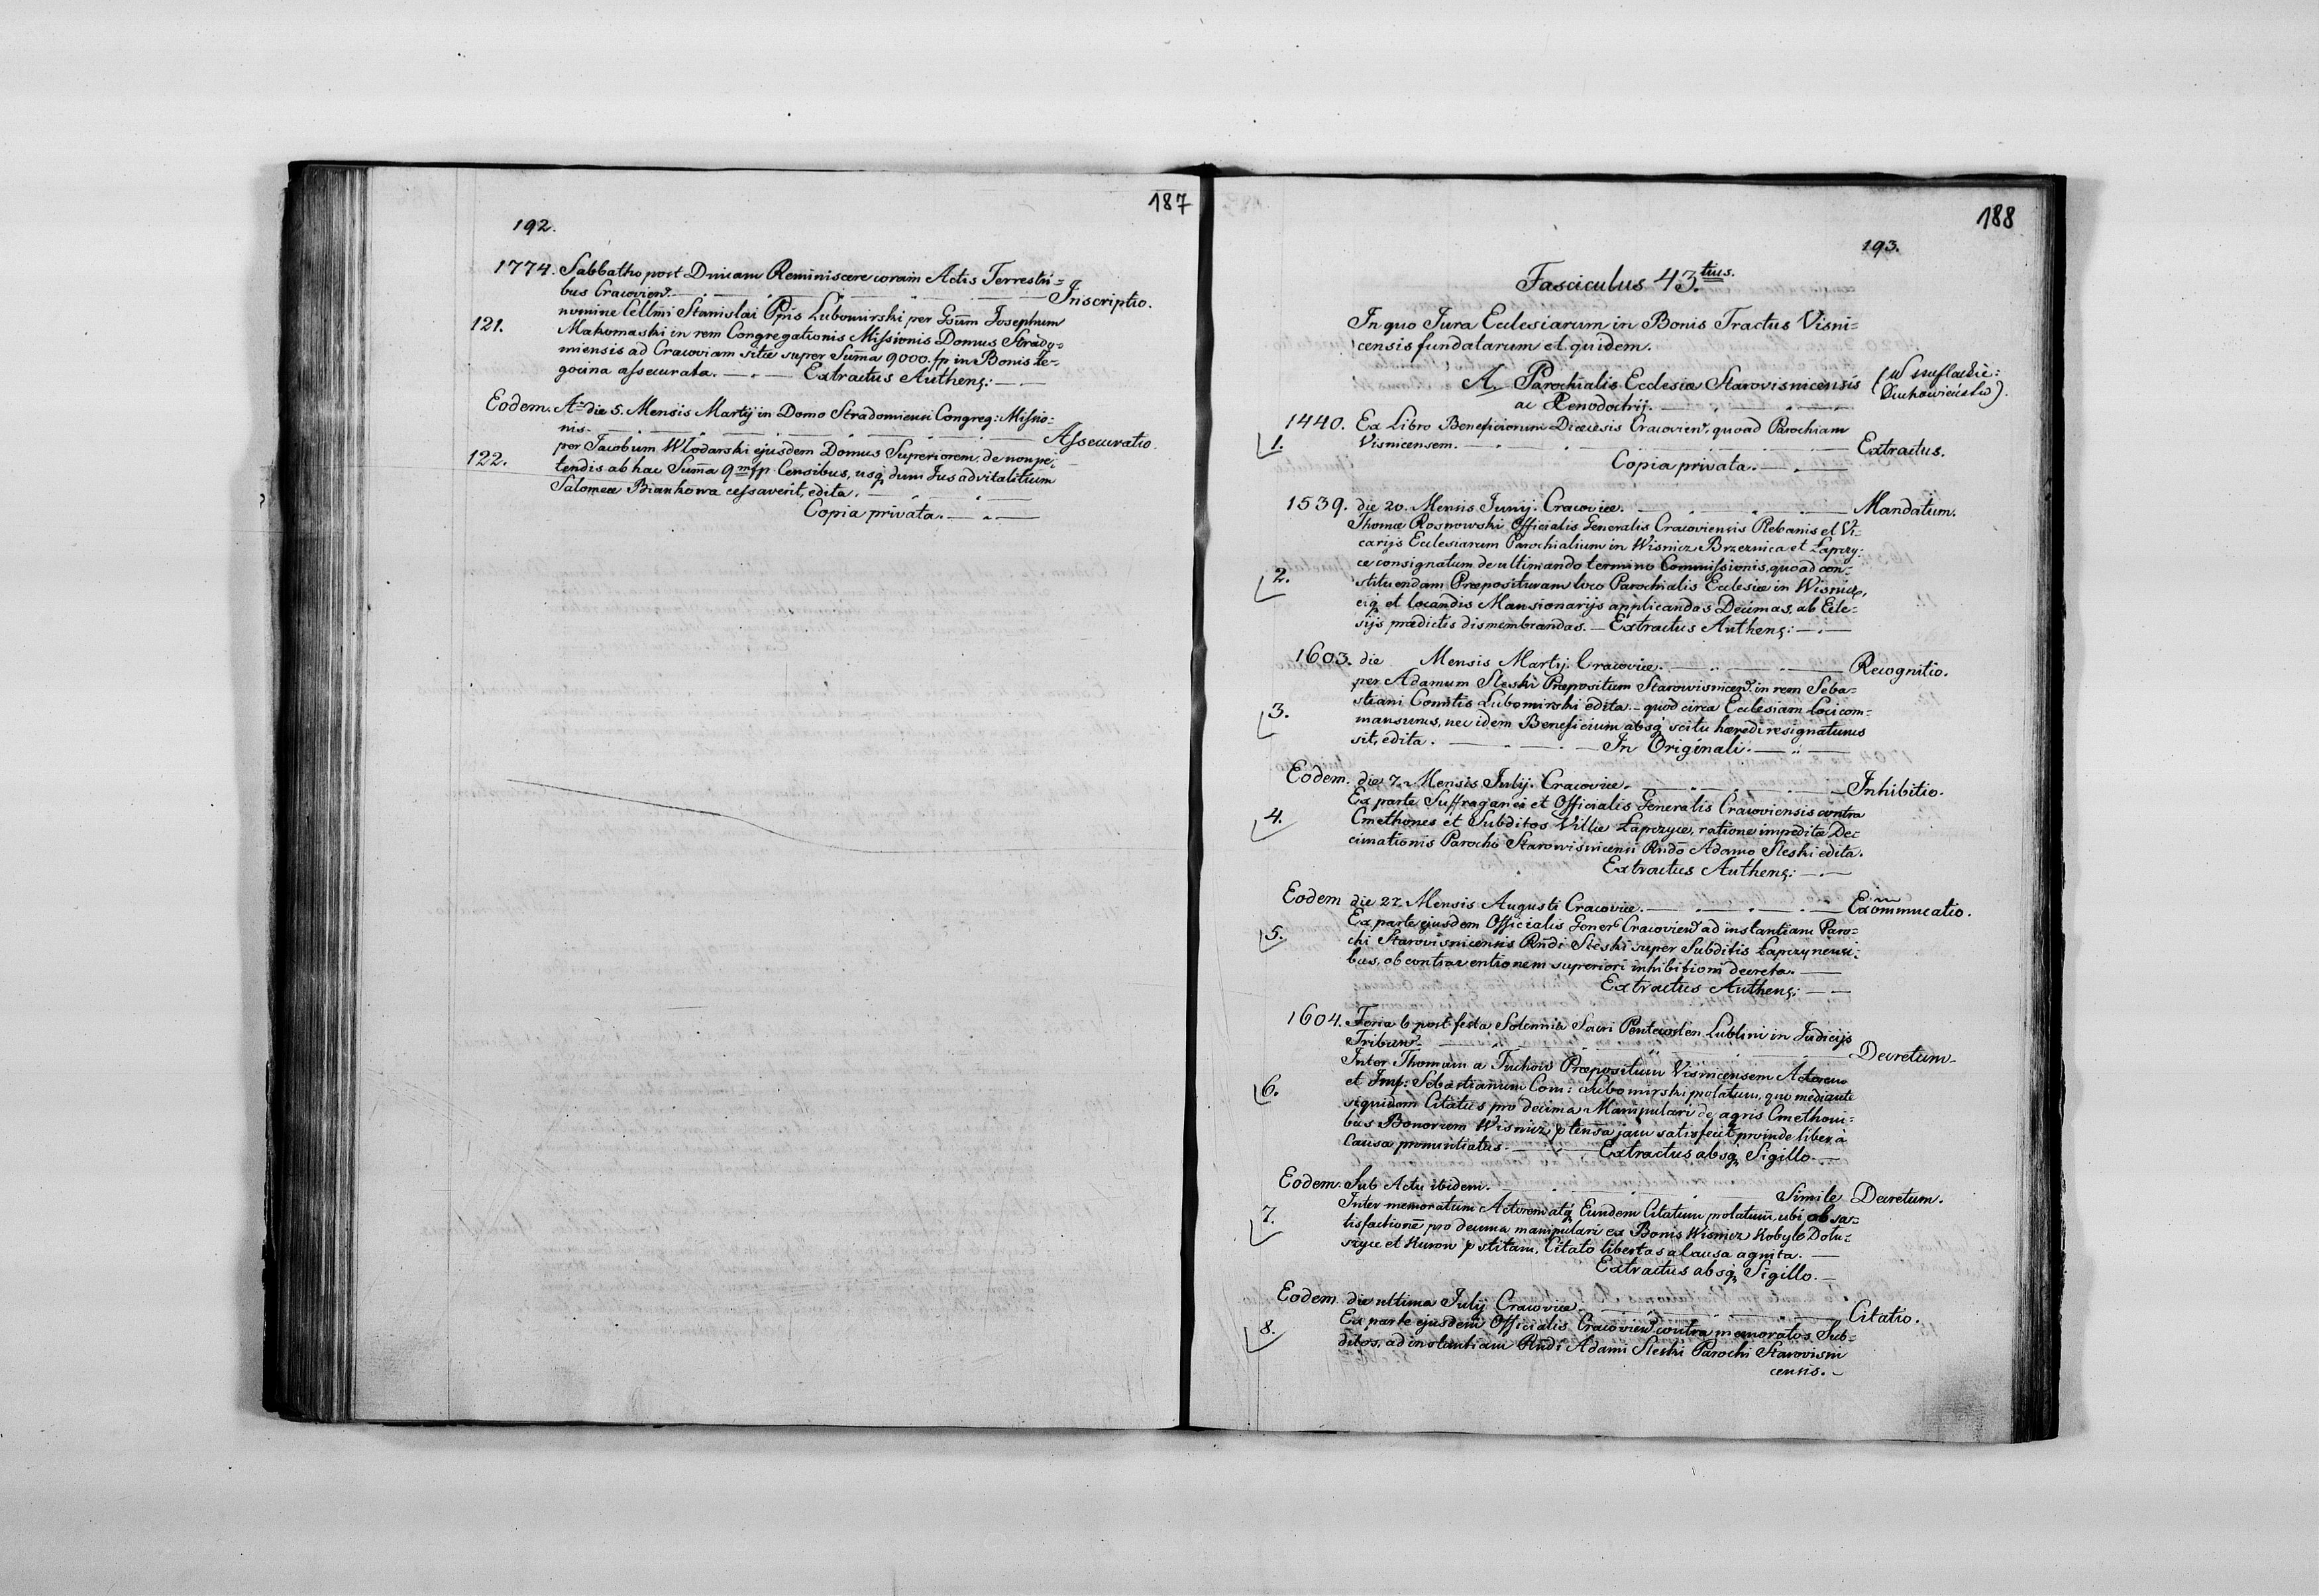 187
192.
1774. Sabbatho post Dnicam Reminiscere coram Actis Terrestri=
bus Cracovien. Inscriptio.
nomine Cellmi Stanislai Ppis Lubomirski per Gsum Josephum
121. Makomaski in rem Congregationis Missionis Domus Strado=
miensis ad Cracoviam sitæ super Suma 9000. fp in Bonis Łe=
gocina assecurata. Extractus Authens:
Eodem. Ao die 5. Mensis Martij in Domo Stradomiensi Congreg: Missio=
nis. Assecuratio.
per Jacobum Włodarski ejusdem Domus Superiorem, de non pe=
122. tendis ab hac Suma 9m fp. Censibus, usq dum Jus advitalitium
Salomeæ Biankowa cessaverit, edita.
Copia privata.
188
193.
Fasciculus 43.tius.
In quo Jura Ecclesiarum in Bonis Tractus Visni=
censis fundatarum et quidem.
A. Parochialis Ecclesiæ Starovisnicensis
ac Xenodochij.
(w szufladzie:
Duchowieństwo).
1440. Ex Libro Beneficiorum Diæcesis Cracovien, quoad Parochiam
1. Visnicensem. Extractus.
Copia privata.
1539. die 20. Mensis Junij. Cracoviæ. Mandatum.
Thomæ Rosnowski Officialis Generalis Cracoviensis Plebanis et Vi=
carijs Ecclesiarum Parochialium in Wisnicz Brzeznica et Łapczy=
ce consignatum de ultimando termino Commissionis, quoad con=
2. stituendam Præposituram loco Parochialis Ecclesiæ in Wisnicz,
eiq et locandis Mansionarijs applicandas Decimas, ab Eccle=
sijs prædictis dismembrandas. Extractus Authens:
1603. die Mensis Martij. Cracoviæ. Recognitio.
per Adamum Sleski Præpositum Starowisnicen in rem Seba=
stiani Comitis Lubomirski edita. quod circa Ecclesiam loci com=
3. mansurus, nec idem Beneficium absq scitu hæredi resignaturus
sit, edita. In Originali.
Eodem. die 7. Mensis Julij. Cracoviæ. Inhibitio.
Ex parte Suffraganei et Officialis Generalis Cracoviensis contra
4. Cmethones et Subditos Villæ Łapczyce, ratione impeditæ De=
cimationis Parocho Starowisnicensi Rndo Adamo Sleski edita.
Extractus Authens:
Eodem die 27. Mensis Augusti Cracoviæ. Excommucatio.
Ex parte ejusdem Officialis Gener Cracovien ad instantiam Paro=
5. chi Starovisnicensis Rndi Sleski super Subditis Łapczynensi=
bus, ob contraventionem superiori inhibitioni decreta.
Extractus Authens:
1604. Feria 6 post festa Solennia Sacri Pentecosten Lublini in Judicijs
Tribun. Decretum.
Inter Thomam a Tuchow Præpositum Visnicensem Actorem
6. et Imp: Sebastianum Com: Lubomirski prolatum, quo mediante
siquidem Citatus pro decima Manipulari de agris Cmethoni=
bus Bonorum Wisnicz ptensa jam satisfecit, proinde liber à
Causa pronuntiatus. Extractus absq Sigillo.
Eodem. Sub Actu ibidem. Simile Decretum.
Inter memoratum Actorem atq Eundem Citatum prolatum, ubi ob sa=
7. tisfactione pro decima manipulari ex Bonis Wisnicz Kobyle Dołu=
szyce et Kurow pstitam, Citato libertas a Causa agnita.
Extractus absq Sigillo.
Eodem. die ultima Julij Cracoviæ. Citatio.
8. Ex parte ejusdem Officialis Cracovien contra memoratos Sub=
ditos, ad instantiam Rndi Adami Sleski Parochi Starovisni
censis.